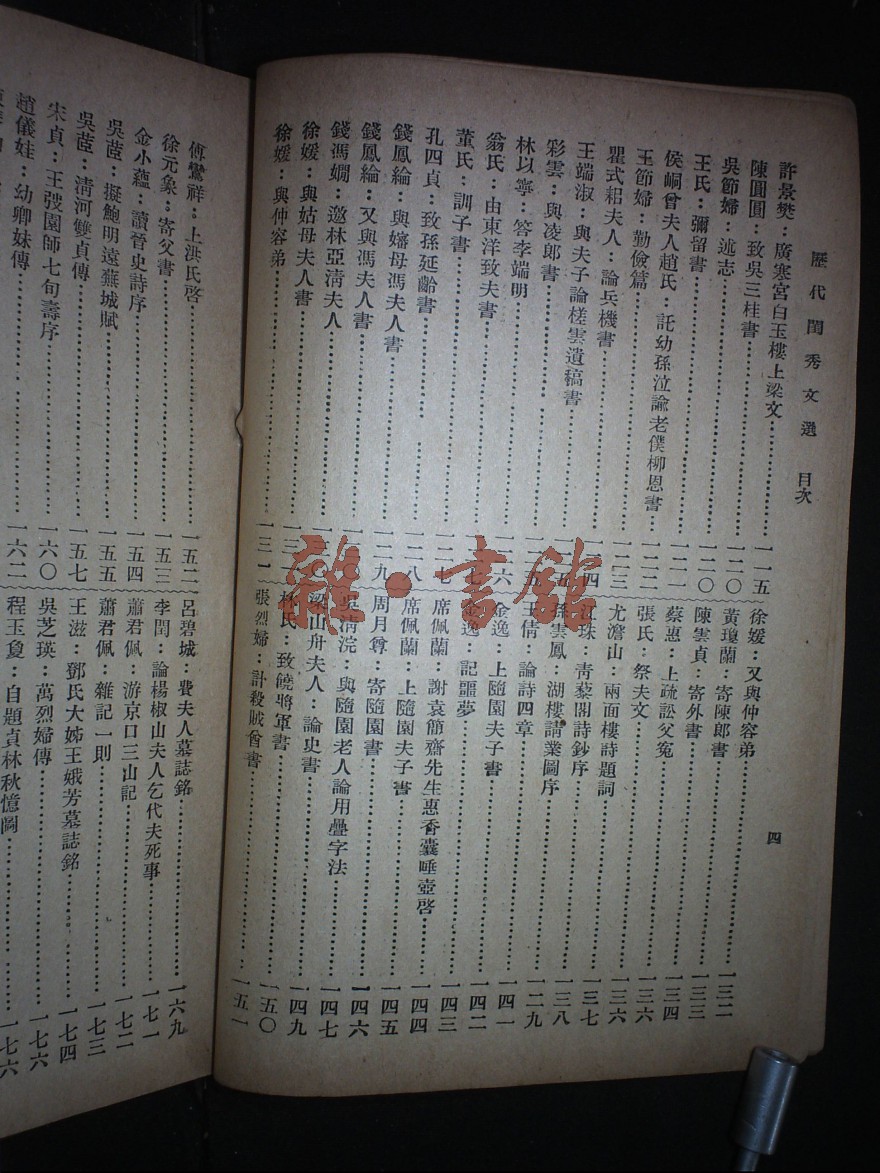 歷代閨秀文選 目次
四
許景樊：廣寒宮白玉樓上梁文……一一五
陳圓圓：致吳三桂書……一二〇
吳節婦：述志……一二〇
王氏：彌留書……一二一
侯峒曾夫人趙氏：託幼孫泣諭老僕柳恩書……一二二
王節婦：勤儉篇……一二三
瞿式耜夫人：論兵機書……一二四
王端淑：與夫子論槎雲遺稿書……一二五
彩雲：與凌郎書……一二五
林以寧：答李端明……一二六
翁氏：由東洋致夫書……一二七
董氏：訓子書……一二七
孔四貞：致孫延齡書……一二八
錢鳳綸：與嬸母馮夫人書……一二九
錢鳳綸：又與馮夫人書……
錢馮嫺：邀林亞清夫人……
徐媛：與姑母夫人書……一三〇
徐媛：與仲容弟……一三一
徐媛：又與仲容弟……一三二
黃瓊蘭：寄陳郎書……一三三
陳雲貞：寄外書……一三四
蔡惠：上疏訟父冤……一三六
張氏：祭夫文……一三六
尤澹山：兩面樓詩題詞……一三七
江珠：青藜閣詩鈔序……一三八
孫雲鳳：湖樓請業圖序……一二九
王倩：論詩四章……一四一
金逸：上隨園夫子書……一四二
金逸：記噩夢……一四三
席佩蘭：謝袁簡齋先生惠香囊唾壺啓……一四四
席佩蘭：上隨園夫子書……一四五
周月尊：寄隨園書……一四六
吳清浣：與隨園老人論用疊字法……一四七
梁山舟夫人：論史書……一四九
林氏：致饒將軍書……一五〇
張烈婦：計殺賊酋書……一五一
傅鸞祥：上洪氏啓……一五二
徐元象：寄父書……一五三
金小蘊：讀晉史詩序……一五四
吳茝：擬鮑明遠蕪城賦……一五五
吳茝：清河雙貞傳……一五七
宋貞：王弢園師七旬壽序……一六〇
趙儀姞：幼卿妹傳……一六二
呂碧城：費夫人墓誌銘……一六九
李閏：論楊椒山夫人乞代夫死事……一七一
蕭君佩：游京口三山記……一七二
蕭君佩：雜記一則……一七三
王滋：鄧氏大姊王娥芳墓誌銘……一七四
吳芝瑛：萬烈婦傳……一七六
程玉夐：自題貞林秋憶圖……一七六
雜·書館